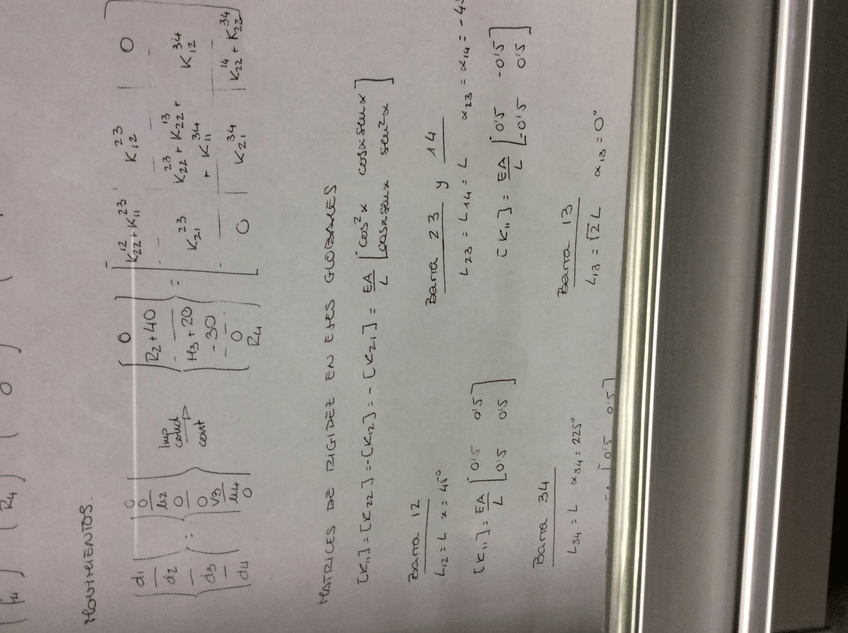 MOVIMIENTOS.
d1 d2 d3 d4 : 0 0 u2 0 0 v3 u4 0
Imp cond cont
0 R2+40 H3+20 -30 0 R4 =
K22^12 + K11^23 K12^23 0
K21^23 K22^23 + K22^13 + K11^34 K12^34
0 K21^34 K22^14 + K22^34
MATRICES DE RIGIDEZ EN EJES GLOBALES
[K11] = [K22] = -[K12] = -[K21] = EA/L [cos²α cosαsenα
cosαsenα sen²α]
Barra 12
L12 = L α = 45°
[K11] = EA/L [0'5 0'5
0'5 0'5]
Barra 23 y 14
L23 = L14 = L α23 = α14 = -45
[K11] = EA/L [0'5 -0'5
-0'5 0'5]
Barra 34
L34 = L α34 = 225°
EA [0'5 0'5]
Barra 13
L13 = √2 L α13 = 0°